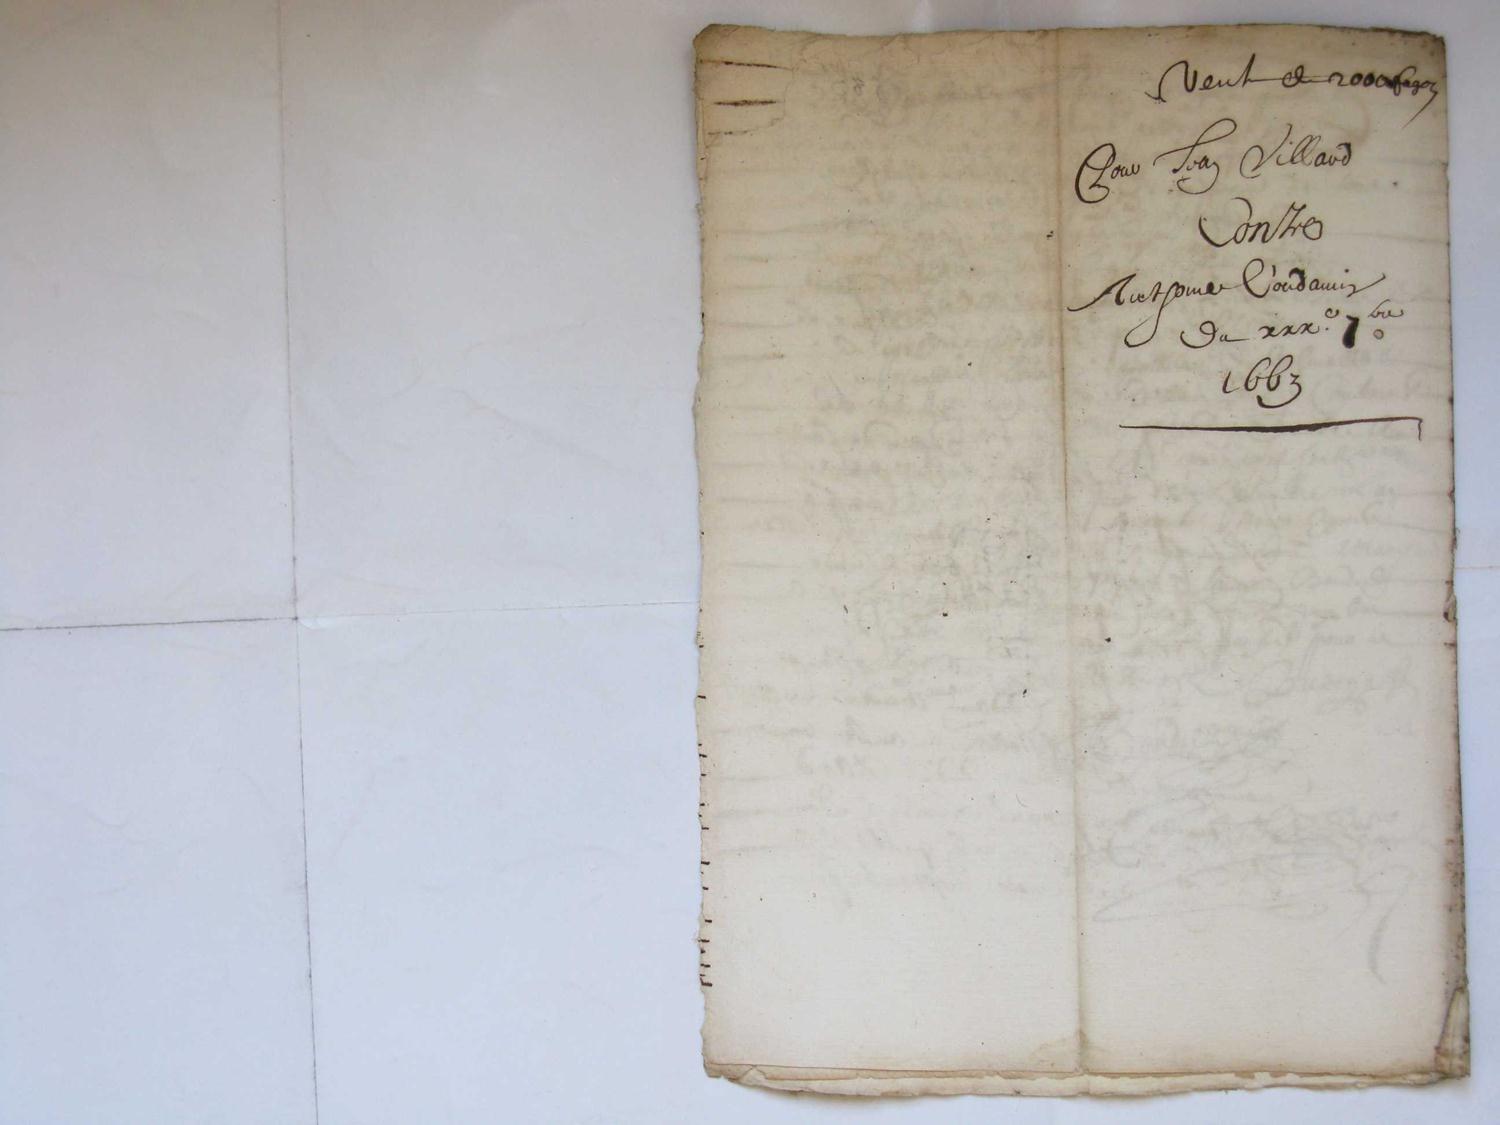 Vent de 2000
Pour Jean Villard
Contre
Anthoine Coudamin
Du xxxe 7bre
1663